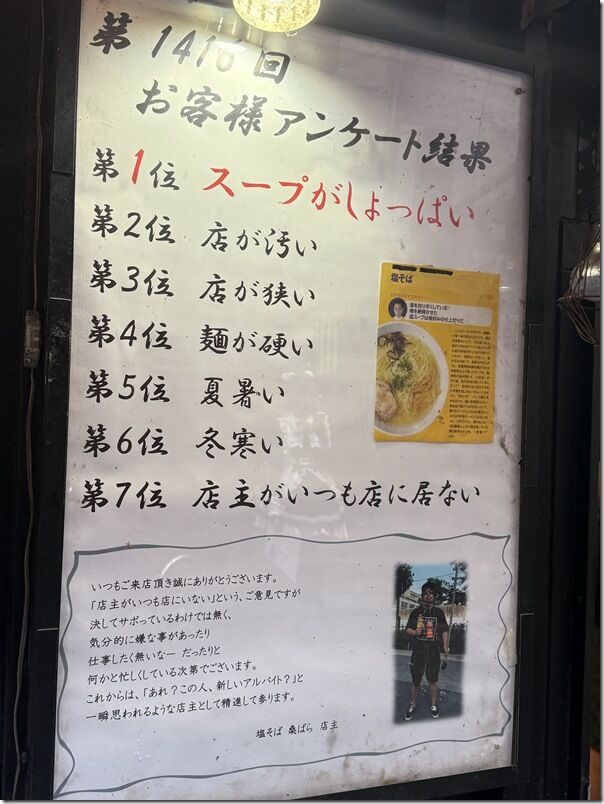 第1416回
お客様アンケート結果
第1位 スープがしょっぱい
第2位 店が汚い
第3位 店が狭い
第4位 麺が硬い
第5位 夏暑い
第6位 冬寒い
第7位 店主がいつも店に居ない
塩そば
塩を知り尽くしている
俺を納得させた
いつもご来店頂き誠にありがとうございます。
「店主がいつも店にいない」という、ご意見ですが
決してサボっているわけでは無く、
気分的に嫌な事があったり
仕事したく無いなー だったりと
何かと忙しくしている次第でございます。
これからは、「あれ？この人、新しいアルバイト？」と
一瞬思われるような店主として精進して参ります。
塩そば 桑ばら 店主